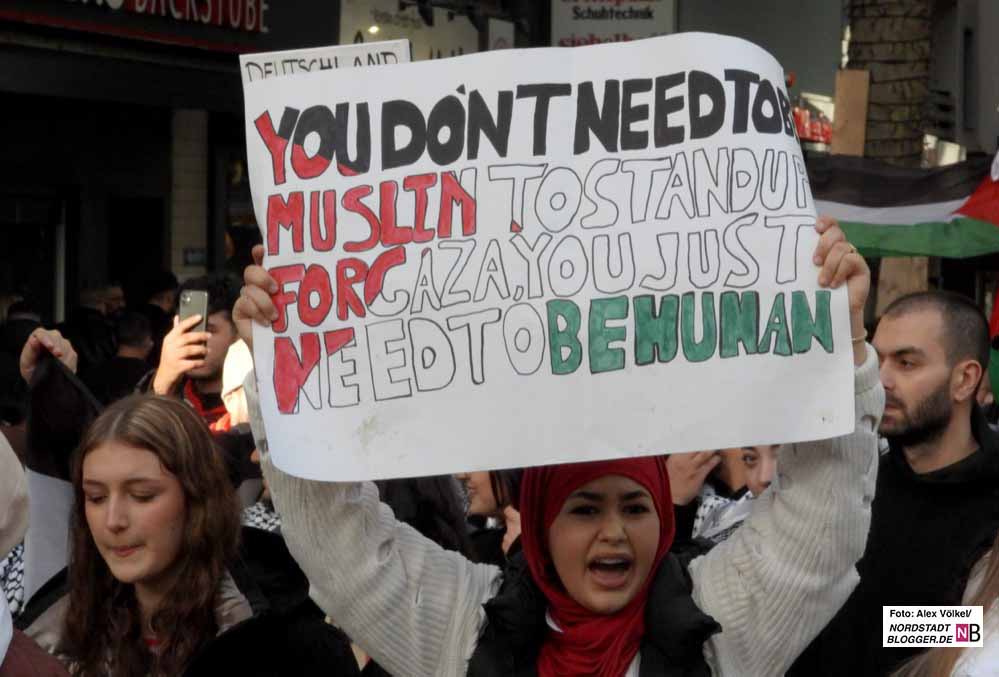 BACKSTUBE
Schuhtechnik
DEUTSCHLAND
YOU DON'T NEED TO B
MUSLIM TO STAND UP
FOR GAZA, YOU JUST
NEED TO BE HUMAN
Foto: Alex Völkel/
NORDSTADT
BLOGGER.DE NB